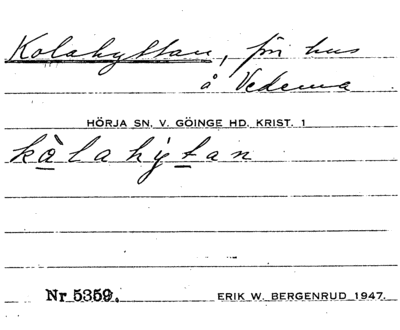 Kolahyttan, för hus
å Vedema
HÖRJA SN. V. GÖINGE HD. KRIST. 1
kòlahýtan
Nr 5359.
ERIK W. BERGENRUD 1947.